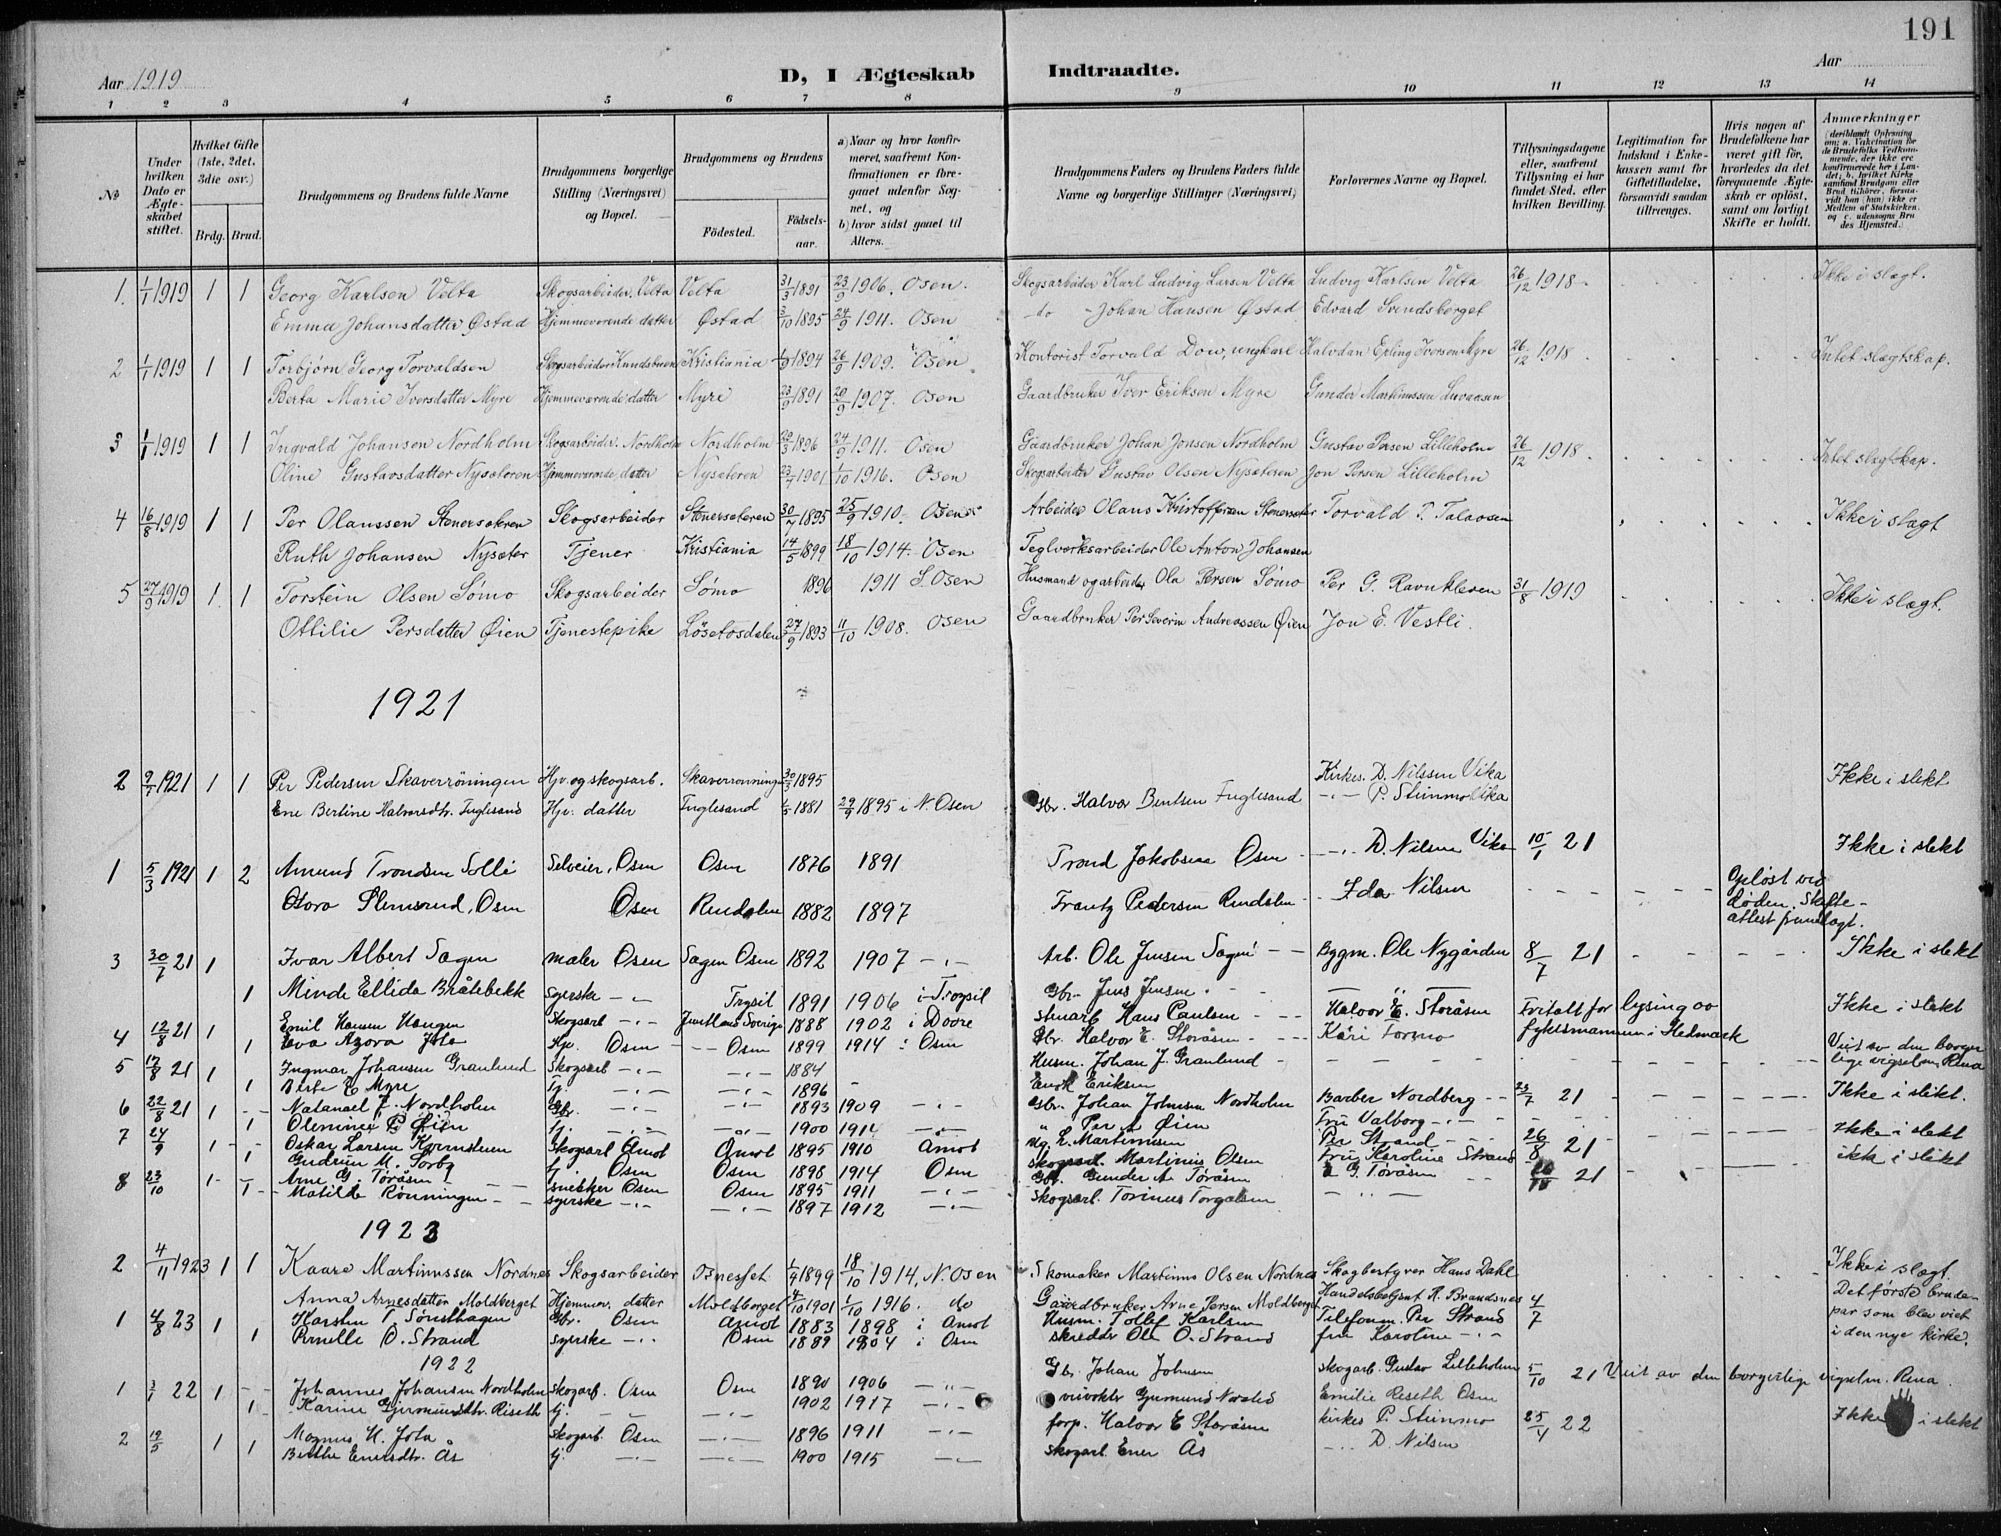 191
Aar 1919 D, I Ægteskab Indtraadte. Aar
1 2 3 4 5 6 7 8 9 10 11 12 13 14
№
Under hvilken Dato er Ægteskabet stiftet.
Hvilket Gifte (1ste, 2det, 3die osv.)
Brdg. Brud.
Brudgommens og Brudens fulde Navne
Brudgommens borgerlige Stilling (Næringsvei) og Bopæl.
Brudgommens og Brudens
Födested. Födselsaar.
a) Naar og hvor konfirmeret, saafremt Konfirmationen er foregaaet udenfor Sognet, og
b) hvor sidst gaaet til Alters.
Brudgommens Faders og Brudens Faders fulde Navne og borgerlige Stillinger (Næringsvei)
Forlovernes Navne og Bopæl.
Tillysningsdagene eller, saafremt Tillysning ei har fundet Sted, efter hvilken Bevilling.
Legitimation for Indskud i Enkekassen samt for Giftetilladelse, forsaavidt saadan tiltrænges.
Hvis nogen af Brudefolkene har været gift för, hvorledes da det foregaaende Ægteskab er oplöst, samt om lovligt Skifte er holdt.
Anmærkninger
1. 1/1 1919 1 1 Georg Karlsen Velta Skogsarbeider, Velta Velta 31/3 1891 23/9 1906. Osen. Skogsarbeider Karl Ludvig Larsen Velta Ludvig Karlsen Velta 26/12 1918 Ikke i slægt.
Emma Johansdatter Østad Hjemmeværende datter Østad 3/10 1895 24/9 1911. Osen do Johan Hansen Østad Edvard Svendsberget
2 1/1 1919 1 1 Torbjørn Georg Torvaldsen Skogsarbeider Kristiania 1/9 1894 26/9 1909. Osen Kontorist Torvald Dow, ungkarl Halvdan Erling Iversen Myre 26/12 1918 Intet slægtskap.
Berta Marie Iversdatter Myre Hjemmeværende datter Myre 23/9 1891 29/9 1907. Osen Gaardbruker Iver Eriksen Myre Gunder Martinussen
3 1/1 1919 1 1 Ingvald Johansen Nordholm Skogsarbeider. Nordholm Nordholm 29/3 1896 24/9 1911. Osen Gaardbruker Johan Jonsen Nordholm Gustav Persen Lilleholm 26/12 1918 Intet slægtskap.
Oline Gustavsdatter Nysæteren Hjemmeværende datter Nysæteren 23/7 1901 1/10 1916. Osen Skogsarbeider Gustav Olsen Nysæteren Jon Persen Lilleholm
4 16/8 1919 1 1 Per Olaussen Stenersæteren Skogsarbeider Stenersæteren 30/7 1895 25/9 1910. Osen Arbeider Olaus Kristoffersen Stenersæter Torvald P. Ikke i slægt
Ruth Johansen Nysæter Tjener Kristiania 14/5 1899 18/10 1914. Osen Teglverksarbeider Ole Anton Johansen
5 27/9 1919 1. 1 Torstein Olsen Sömo Skogsarbeider Sömo 1896 1911 S. Osen Husmand og arbeider Ola Persen Sömo Per G. Ravnkleven 31/8 1919 Ikke i slægt.
Ottilie Persdatter Øien Tjenestepike Løsetosdalen 27/9 1893 11/10 1908. Osen Gaardbruker Per Severin Andreassen Øien Jon E. Vestli.
1921
2 9/1 1921 1 1 Per Pedersen Skaverröningen Hjv. og skogsarb. Skaverrönningen 30/3 1895 Kirkes. D. Nilssen Vika Ikke i slekt
Ene Bertine Halvorsdtr. Fuglesand Hjv. datter Fuglesand 1/5 1881 29/9 1895 i N. Osen Gbr. Halvor Bentsen Fuglesand P. Stenmo Vika
1 5/3 1921 1 2 Amund Trondsen Solli Selveier, Osen Osen 1876 1891 Trond Jakobsen Osen D. Nilsen Vika 10/1 21 Ikke i slekt
Osen Osen Rendalen 1882 1897 Frantz Pedersen Rendalen Ida Nilsen Opløst ved döden. Skifteattest fremlagt.
3 30/7 21 1 Ivar Albert Sagen maler Osen Sagen Osen 1892 1907 Arb. Ole Jensen Sagen Bygm. Ole Nygården 8/7 21 Ikke i slekt
1 Minda Ellida Bråtebekk syerske Trysil 1891 1906 i Trysil Gbr. Jens Jensen
4 12/8 21 1 Emil Hansen Haugen Skogsarb 1888 1902 i Hans Paulsen Halvor E. Storåsen Fritatt for lysing av fylkesmannen i Hedmark Ikke i slekt
1 Eva Azora Osen Osen 1899 1914 i Osen Gbr. Halvor E. Storåsen Kåri Tormo
5 17/8 21 1 Ingmar Johansen Granlund Skogsarb 1884 Husm. Johan J. Granlund Viet av den borgerlige vigselm. Rena
1 Berte E Myre Tj. 1896 Enok Eriksen
6 22/8 21 1 Natanael J. Nordholm Gbr. 1893 1909 Gbr. Johan Johnsen Nordholm Barber Nordberg 23/7 21 Ikke i slekt.
1 Olemine P. Øien Tj. 1900 1914 Per A Øien Fru Valborg
7 24/9 1 Oskar Larsen Skogsarb Åmot Åmot 1895 1910 Åmot L. Martinusen Per Strand 26/8 21 Ikke i slekt
1 Gudrun M. Torbg Tj. Osen Osen 1898 1914 Osen skogsarb. Martinius Olsen Fru Karoline Strand
8 23/10 1 Arne G. Töråsen snekker Osen Osen 1895 1911 Gbr. Gunder A. Töråsen G. Töråsen 21 ikke i slekt
1 Matilde Rönningen syerske 1897 1912 Skogsarb. Torinus Torgalsen
1923
2 4/11 1923 1 1 Kaare Martinussen Nordnes Skogsarbeider Osneset 1/9 1899 18/10 1914, N. Osen Skomaker Martinus Olsen Nordnes Skogbestyrer Hans Dahl Ikke i slægt.
Anna Arnesdatter Moldberget Hjemmev. datter Moldberget 4/10 1901 1/10 1916. do Gaardbruker Arne Persen Moldberget Handelsbetjent H. Brandsnes Det første brudepar som blev viet i den nye kirke.
1 4/8 23 1 Karsten T. Sönsthagen Gbr. Osen Åmot 1883 1898 i Åmot Husm. Tollef Karlsen Telefonm. Per Strand 4/7
1 Pernelle O. Strand syerske Osen 1889 1904 i Osen skredder Ole O. Strand fru Karoline
1922
1 3/1 22 1 Johannes Johansen Nordholm skogarb. Osen Osen 1890 1906 Gb. Johan Johnsen skogarb. Gustav Lilleholm 5/10 21 Viet av den borgerlige vigselm. Rena.
1 Karine Gjermundsdtr. Riseth tj. 1902 1917 Gjermund Emilie Riseth Osen
2 19/5 1 Magnus H. Jota skogarb. Osen 1896 1911 forp. Halvor E Storåsen kirkes P. Stenmo 25/4 22 Ikke i slekt
1 Berthe Enersdtr. Ås tj. 1900 1915 skogarb. Ener Ås D. Nilsen